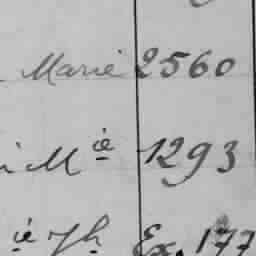 Marie 2560
Mie 1293
ie Jh Ex. 177